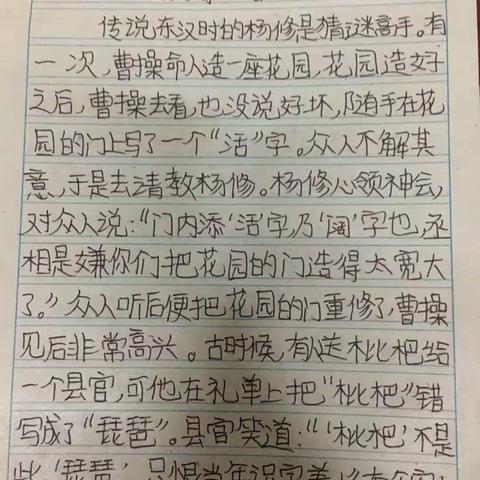 传说东汉时的杨修是猜谜高手。有
一次,曹操命人造一座花园,花园造好
之后,曹操去看,也没说好坏,随手在花
园的门上写了一个“活”字。众人不解其
意,于是去请教杨修。杨修心领神会,
对众人说:“门内添‘活’字,乃‘阔’字也,丞
相是嫌你们把花园的门造得太宽大
了。”众人听后便把花园的门重修了,曹操
见后非常高兴。古时候,有人送枇杷给
一个县官,可他在礼单上把“枇杷”错
写成了“琵琶”。县官笑道:“‘枇杷’不是
此‘琵琶’,只恨当年识字差!”